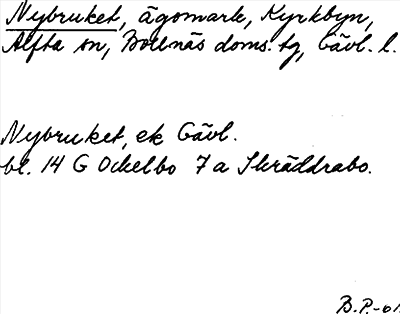 Nybruket, ägomark, Kyrkbyn,
Alfta sn, Bollnäs doms. tg, Gävl. l.
Nybruket, ek Gävl.
bl. 14 G Ockelbo 7 a Skräddrabo.
B.P.-01